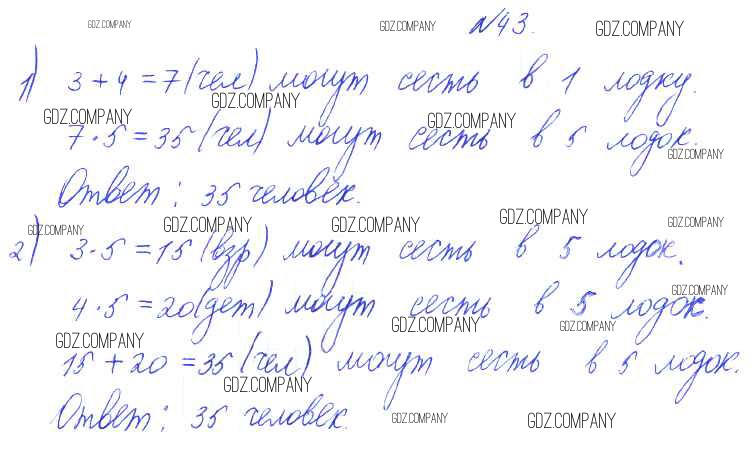 GDZ.COMPANY GDZ.COMPANY №43. GDZ.COMPANY
1) 3 + 4 = 7 (чел) могут сесть в 1 лодку.
GDZ.COMPANY GDZ.COMPANY GDZ.COMPANY
7 · 5 = 35 (чел) могут сесть в 5 лодок.
GDZ.COMPANY
Ответ: 35 человек.
GDZ.COMPANY GDZ.COMPANY GDZ.COMPANY GDZ.COMPANY GDZ.COMPANY
2) 3 · 5 = 15 (взр) могут сесть в 5 лодок.
GDZ.COMPANY
4 · 5 = 20 (дет) могут сесть в 5 лодок.
GDZ.COMPANY GDZ.COMPANY GDZ.COMPANY
15 + 20 = 35 (чел) могут сесть в 5 лодок.
GDZ.COMPANY
Ответ: 35 человек.
GDZ.COMPANY GDZ.COMPANY